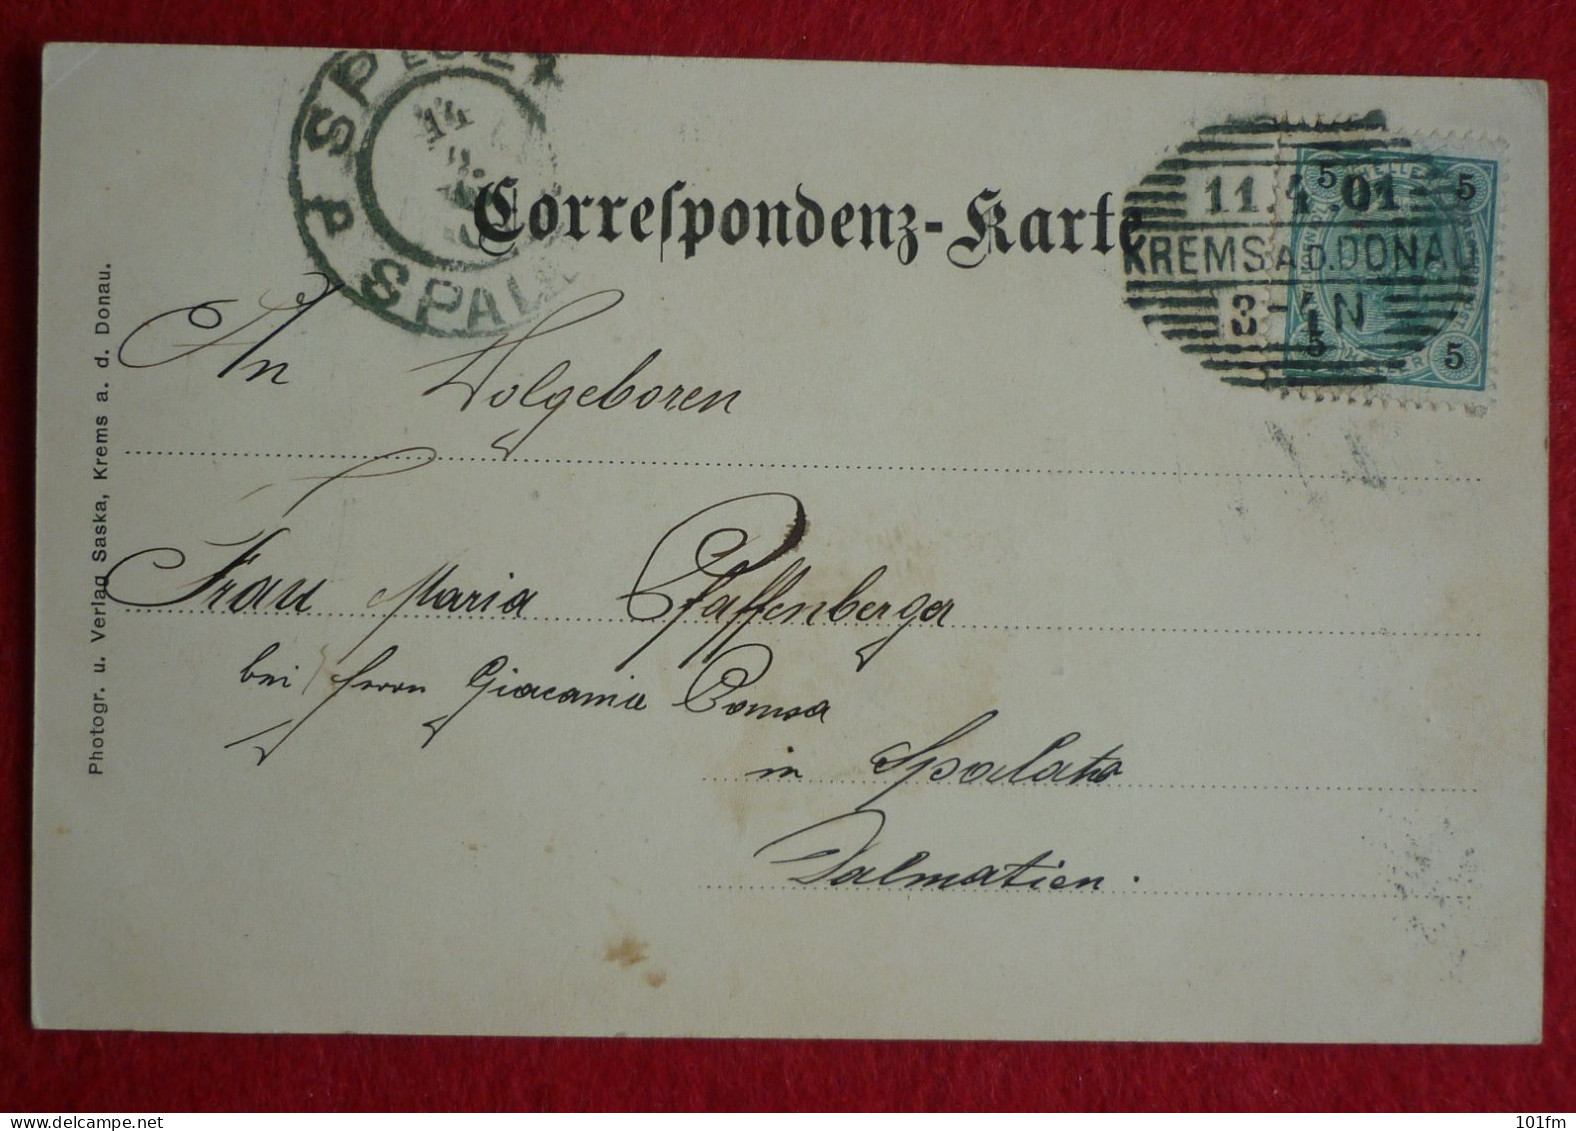 Correspondenz-Karte
SPALATO
SPLJET
14
11.4.01
KREMS A.D. DONAU
3-4 N
5 HELLER 5
5 5
An Wolgeboren
Frau Maria Pfaffenberger
bei Herrn Giacamia Comsa
in Spalato
Dalmatien.
Photogr. u. Verlag Saska, Krems a. d. Donau.
101fm